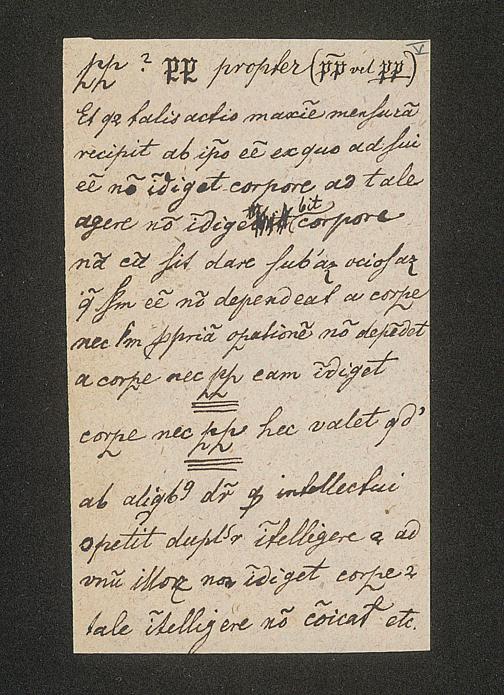 pp ? pp propter (p̄p̄ vel pp) V
Et qꝫ talis actio maxiē mensurā
recipit ab ip̄o eē ex quo ad sui
eē nō īdiget corpore ad tale
agere nō īdigebit corpore
nā cū sit dare sub'aꝫ ociosaꝫ
q̄ s̄m eē nō dependeat a corpe
nec s̄m ꝓpriā opationē nō depēdet
a corpe nec pp eam īdiget
corpe nec pp hec valet qd'
ab aliqbꝰ dr̄ ꝙ intellectui
opetit duplr̄ ītelligere ⁊ ad
vnū illoꝝ non īdiget corpe ⁊
tale ītelligere nō cōicat etc.